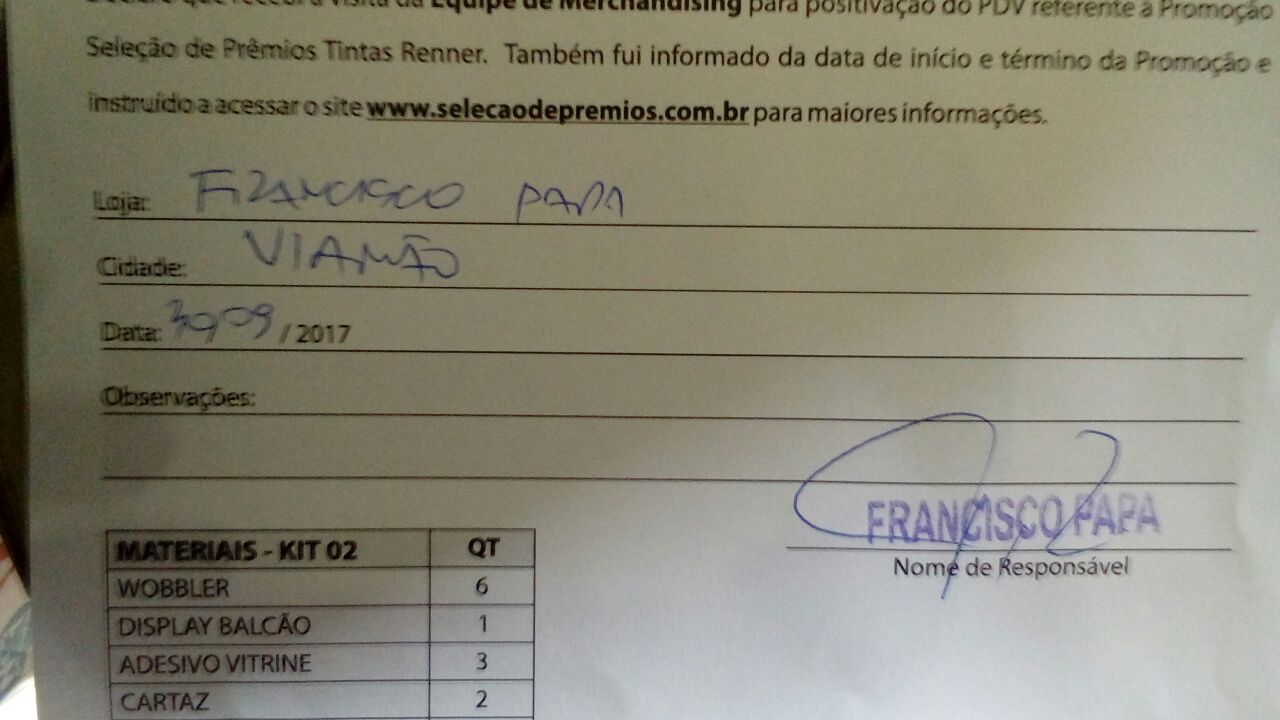 Declaro que recebi a visita da Equipe de Merchandising para positivação do PDV referente a Promoção
Seleção de Prêmios Tintas Renner. Também fui informado da data de início e término da Promoção e
instruído a acessar o site www.selecaodepremios.com.br para maiores informações.
Loja: FRANCISCO PAPA
Cidade: VIAMÃO
Data: 30/09 / 2017
Observações:
FRANCISCO PAPA
Nome de Responsável
MATERIAIS - KIT 02 QT
WOBBLER 6
DISPLAY BALCÃO 1
ADESIVO VITRINE 3
CARTAZ 2